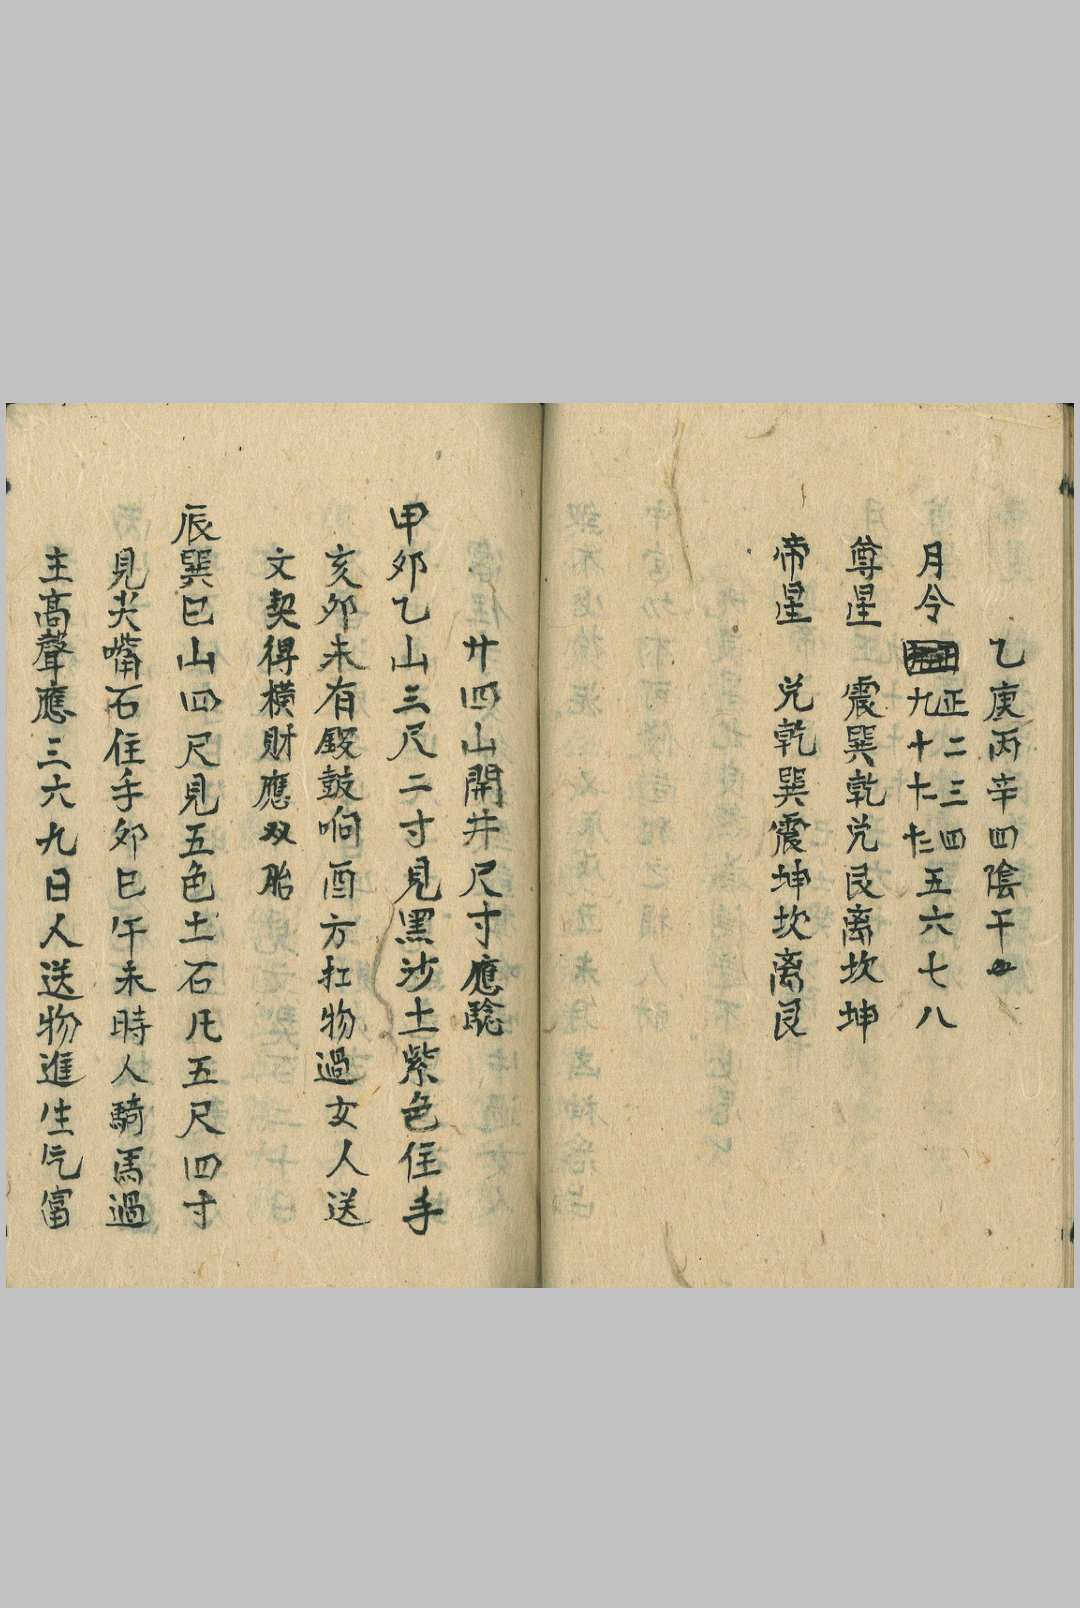 乙庚丙辛四陰干
月令 正二三四五六七八
九十十一十二
尊星 震巽乾兌艮离坎坤
帝星 兌乾巽震坤坎离艮
廿四山開井尺寸應驗
甲夘乙山三尺二寸見黑沙土紫色住手
亥夘未有鼓响酉方扛物過女人送
文契得横財應双胎
辰巽巳山四尺見五色土石凡五尺四寸
見尖嘴石住手夘巳午未時人騎馬過
主高聲應三六九日人送物進生气富